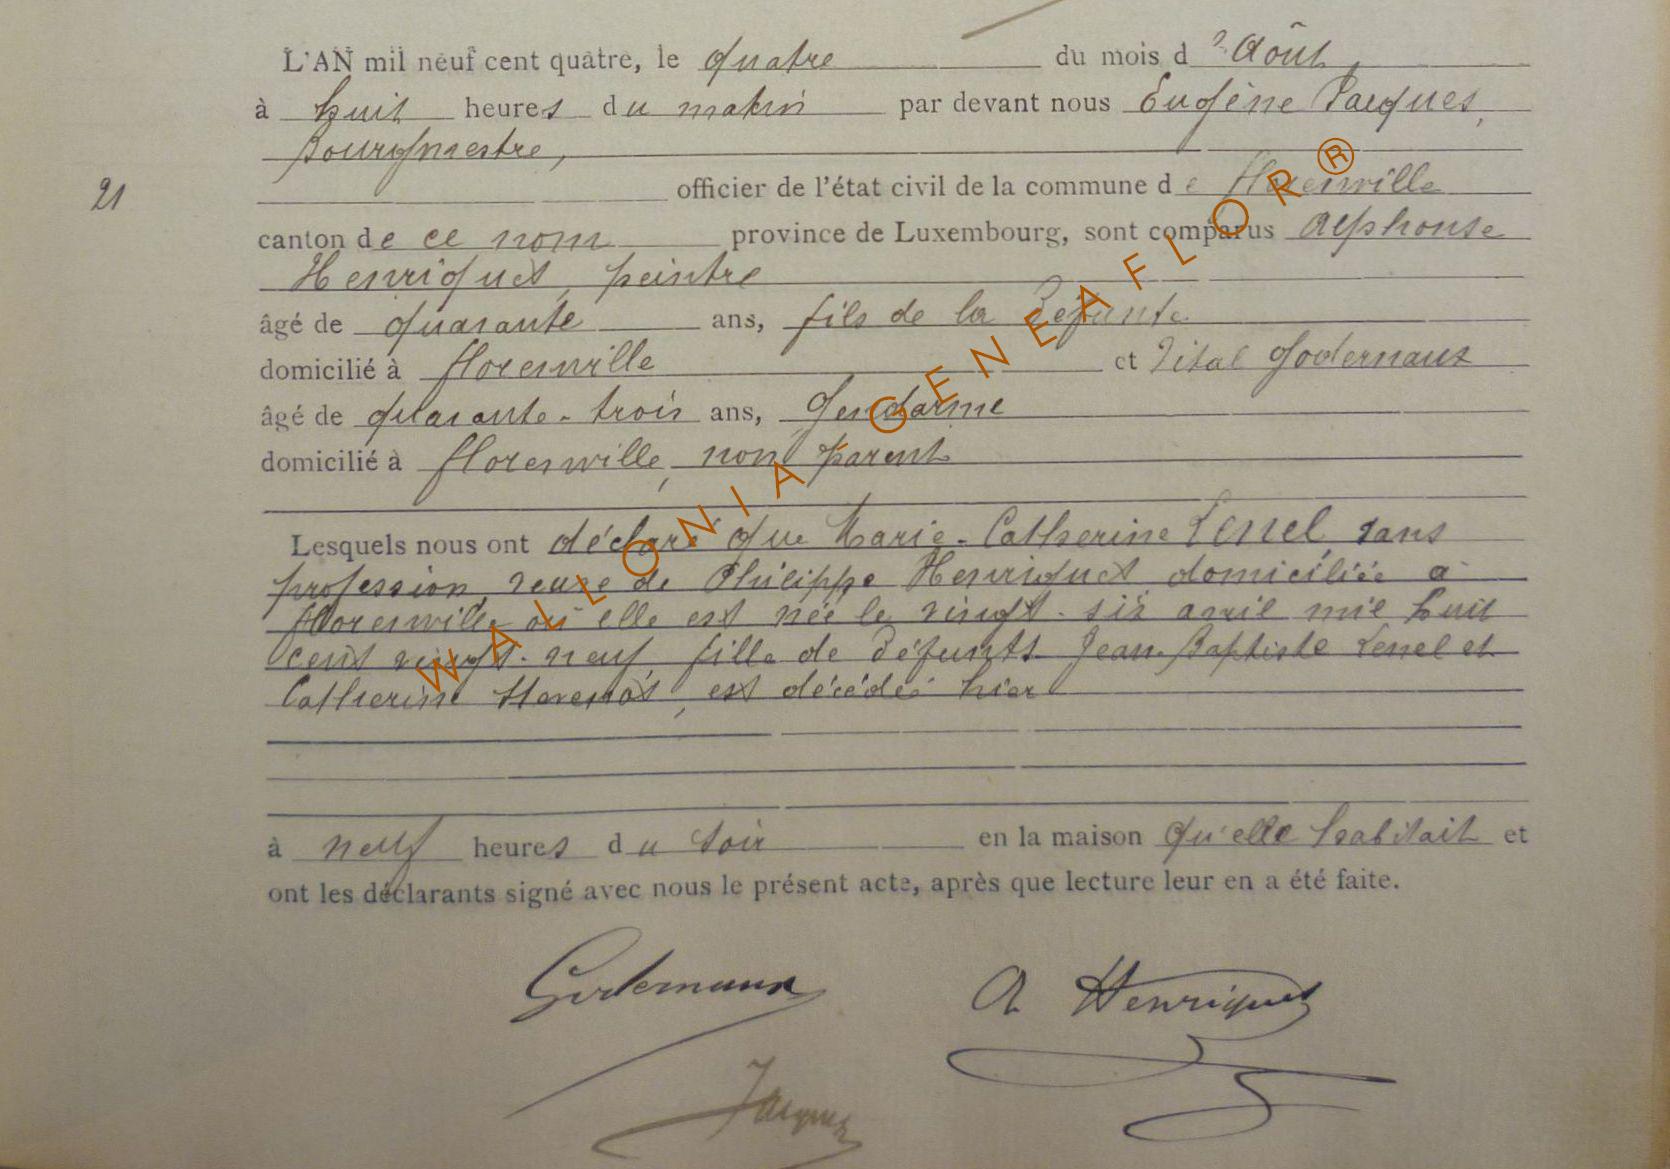 L'AN mil neuf cent quatre, le quatre du mois d'Août
à huit heures du matin par devant nous Eugène Jacques,
Bourgmestre,
21
officier de l'état civil de la commune de Florenville
canton de ce nom province de Luxembourg, sont comparus Alphonse
Henriquet, peintre
âgé de quarante ans, fils de la défunte
domicilié à Florenville et Vital Godernaux
âgé de quarante-trois ans, Gendarme
domicilié à Florenville, non parent
Lesquels nous ont déclaré que Marie-Catherine Lenel sans
profession, veuve de Philippe Henriquet domiciliée à
Florenville où elle est née le vingt-six avril mil huit
cent vingt-neuf, fille de défunts Jean-Baptiste Lenel et
Catherine, est décédée hier
à neuf heures du soir en la maison qu'elle habitait et
ont les déclarants signé avec nous le présent acte, après que lecture leur en a été faite.
Godernaux A Henriquet
Jacques
WALLONIA GENEAFLOR®